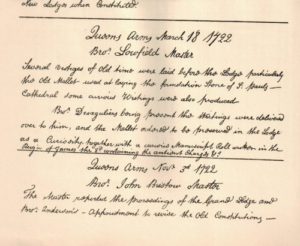 new Lodges when Constituted
Queens Arms March 18 1722
Bro. Lowfield Master
Several vestiges of Old time were laid before the Lodge particularly
the Old Mallet used at laying the foundation Stone of St Pauls
Cathedral some curious Writings were also produced
Bro. Desaguliers being present the Writings were delivered
over to him, and the Mallet ordered to be preserved in the Lodge
as a Curiosity, together with a curious Manuscript Roll written in the
Reign of James the 2d containing the antient Charges &c
Queens Arms Novr 3d 1722
Bro. John Bristow Master
The Master reported the proceedings of the Grand Lodge and
Bro. Anderson's Appointment to revise the Old Constitutions